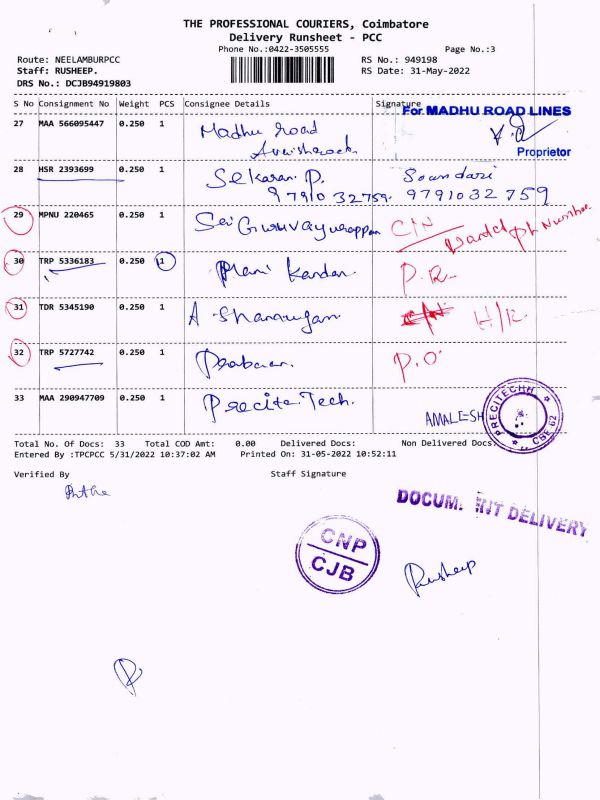 THE PROFESSIONAL COURIERS, Coimbatore
Delivery Runsheet - PCC
Phone No.:0422-3505555
Page No.:3
Route: NEELAMBURPCC
RS No.: 949198
Staff: RUSHEEP.
RS Date: 31-May-2022
DRS No.: DCJB94919803
S No Consignment No Weight PCS Consignee Details Signature
For MADHU ROAD LINES
27 MAA 566095447 0.250 1 Madhu Road
Proprietor
28 HSR 2393699 0.250 1 Sekaran P. Soundari
9791032759. 9791032759
29 MPNU 220465 0.250 1 Sri Guruvayurappan C/N
30 TRP 5336183 0.250 1 Mani Kandan P.R.
31 TDR 5345190 0.250 1 A Shanmugam
32 TRP 5727742 0.250 1 Prabakar. P.O
33 MAA 290947709 0.250 1 Precite Tech. AMALESH
PRECITECHH CBE 62
Total No. Of Docs: 33 Total COD Amt: 0.00 Delivered Docs: Non Delivered Docs:
Entered By :TPCPCC 5/31/2022 10:37:02 AM Printed On: 31-05-2022 10:52:11
Verified By Staff Signature
DOCUM. RIT DELIVERY
CNP
CJB
Rusheep